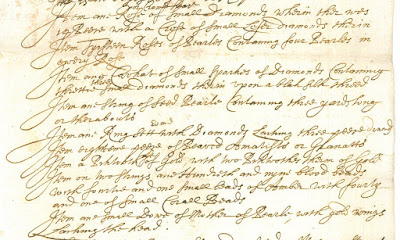 Item one Rose of Small Diamonds wherin ther was
19 there with a Crosse of Small Diamonds therin
Item Eyghteen Roses of Pearles Contaning four Pearles in
every Rose
Item one of Small Sparkes of Diamonds Contaning
twelve Small Diamonds therin upon a black silk threed
Item one String of Seed Pearle Contaning three yards long
or therabouts
Item one Ring sett with Diamonds Lacking three
Item eighteene peece of Amatists or Granatts
Item a of Gold with two of Gold
Item on two strings one Hundreth and nyne blood beads
with fourtie and one Small Beads of Amber with fourty
and one of Small Corall Beads
Item one Small Dove of Mother of Pearle with gold wings
Lacking the head